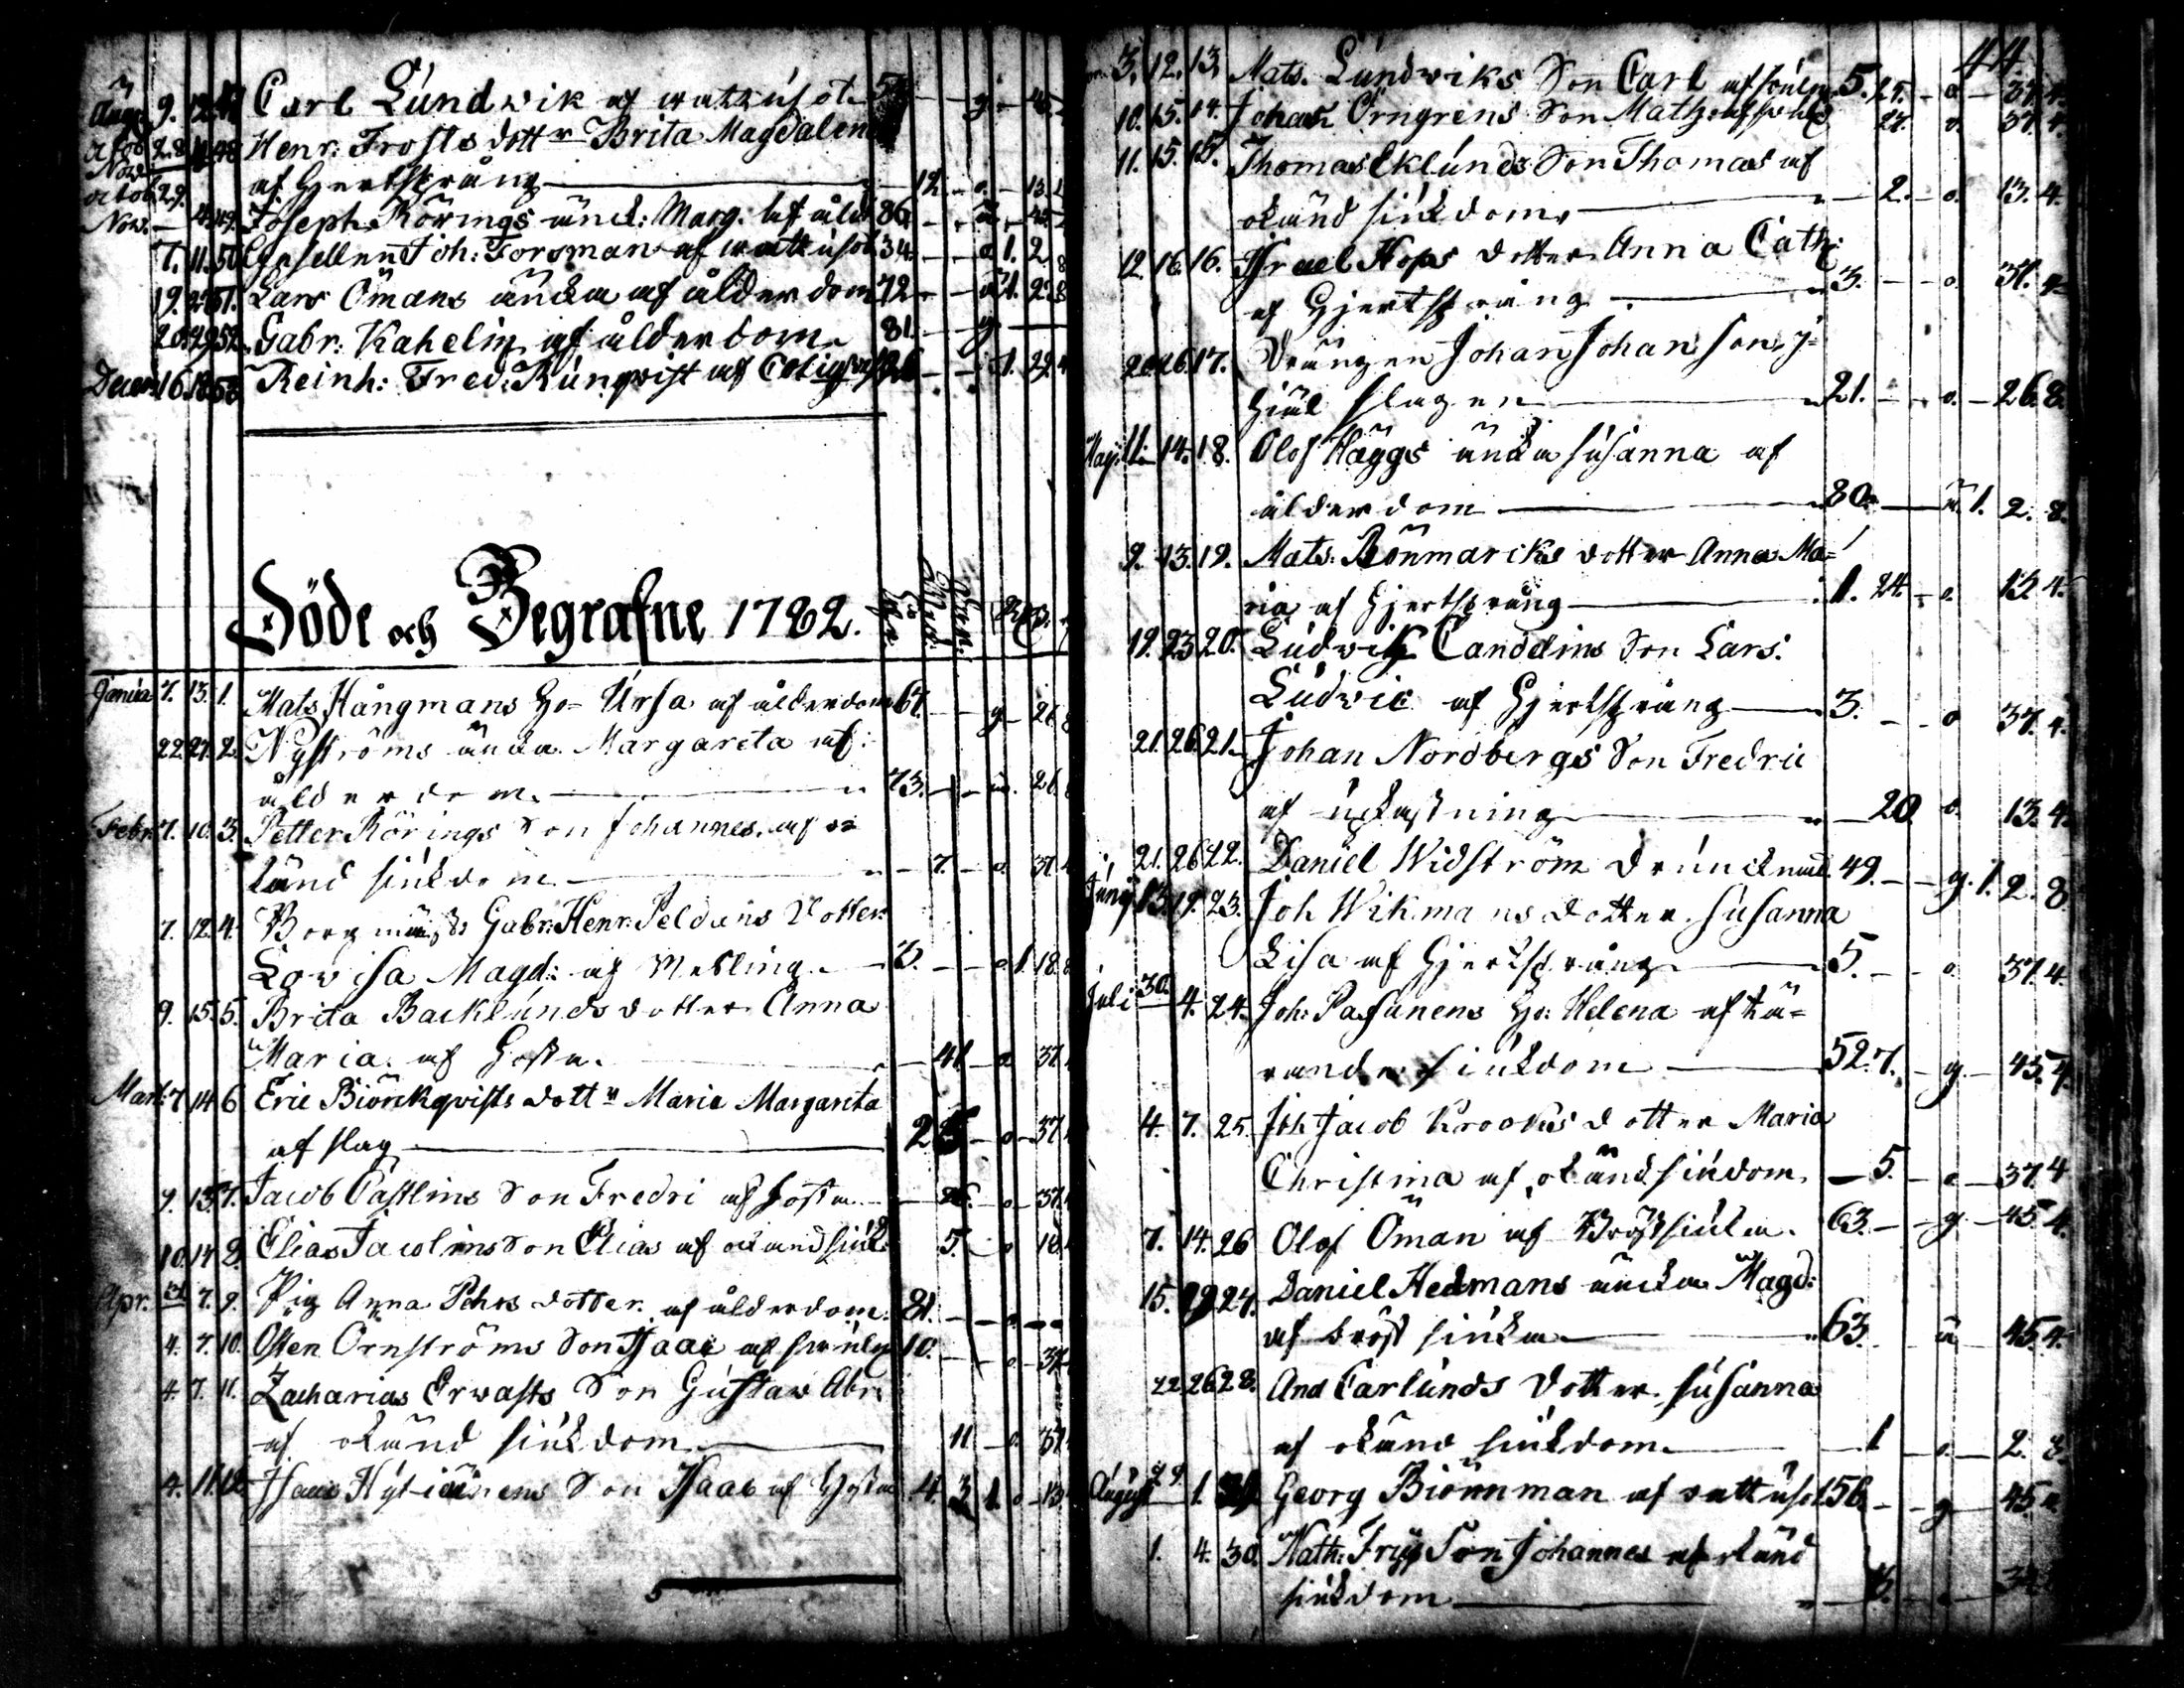 Aug. 9. 12. 47 Carl Lundwik af wattusot 5 g. 45.
octob 28 48 Henr: Frosts dottr Brita Magdalena
Nov.
af Hjertsprång 12. o. 13
octob 29.
Nov. 4. 49. Joseph Rörings änck: Marg. af åld 86. ä 45
7. 11. 50 Gesellen Joh: Forsman af wattusot 34. o 1. 2. 8
19. 25 51. Lars Ömans äncka af ålderdom 72 ä 1. 2. 8
20. 29 52. Gabr. Kahelin af ålderdom 81. g.
Decem 16. 18 53 Reinh: Fred: Runqvist af Colique 26 1. 22. 4
Döde och Begrafne 1782.
Janua 7. 13. 1. Mats Hångmans Ho- Ursa af ålderdom 67. g 26. 8
22. 27. 2. Nyströms äncka Margareta af
ålderdom 73. ä. 26. 8
Febr. 7. 10. 3. Petter Rörings Son Johannes af o=
känd siukdom 7. o. 37. 4
7. 12. 4. Borgmäst: Gabr: Henr: Peldans Dotter
Lovisa Magd: af Mesling 3. o 1. 18. 8
9. 15. 5. Brita Backlunds dotter Anna
Maria af Hosta. 41 o 37
Mart: 7 14 6 Eric Biörckqvists dottr Maria Margareta
af slag 25 o 37
9. 13. 7. Jacob Castlins Son Fredri af hosta 26. o 37
10. 14 8. Elias Jacolins Son Elias af okänd siuk 5. o 18
Apr. 7. 9. Pig Anna Pehrs dotter af ålderdom. 81. o.
4. 7. 10. Osten Örnströms Son Isaac af 10. o. 37
4. 7. 11. Zacharias Erwasts Son Gustaw Abr:
af okänd siukdom 11 o. 37
4. 11. 12. Isaac Son Isaac af Hosta 4. 3 1. o 13.
44
3. 12. 13. Mats. Lundwiks Son Carl af 5. 27. o 37. 4.
10. 15. 14. Johan Örngrens Son Maths af 27. o. 37. 4.
11. 15. 15. Thomas Eklunds Son Thomas af
okänd siukdom 2. o. 13. 4.
12. 16. 16. Israel Hops dotter Anna Cath:
af Hjertsprång 3. o. 37. 4
20. 26. 17. Drängen Johan Johansson i=
hiäl slagen 21. o. 26. 8.
Maij. 11. 14. 18. Olof Häggs äncka Susanna af
ålderdom 80. ä. 1. 2. 8.
9. 13. 19. Mats. Rönmarcks dotter Anna Ma=
ria af Hjertsprång 1. 24. o. 13 4.
19. 23 20. Ludwik Candelins Son Lars
Ludwic af Hjertsprång 3. o 37. 4.
21. 26. 21. Johan Nordbergs Son Fredric
af 20. o. 13. 4.
21. 26 22. Daniel Widström Drunknad 49. g. 1. 2. 8.
Junij 13 19. 23. Joh Wikmans dotter Susanna
Lisa af Hjertsprång 5. o. 37. 4.
Juli 30. 4. 24. Joh: Pasanens Ho: Helena af tä=
rande siukdom 52. 7. g. 45. 4.
4. 7. 25. Joh Jacob Krooks dotter Maria
Christina af okänd siukdom 5. o 37. 4
7. 14. 26 Olof Öman af Bröstsiuka. 63. g. 45. 4.
15. 22 27. Daniel Hedmans äncka Magd:
af bröst siuka 63. ä 45. 4.
22. 26 28. And Carlunds dotter Susanna
af okänd siukdom 1 o. 2. 8.
August 29 1. 29 Georg Biönnman af wattusot 56 g 45.
1. 4. 30. Nath: Frijs Son Johannes af okänd
siukdom 3.